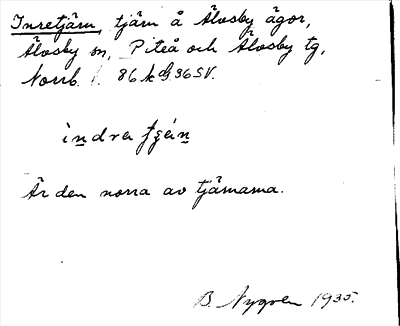 Inretjärn, tjärn å Älvsby ägor,
Älvsby sn, Piteå och Älvsby tg,
Norrb. l. 86 k dj 36 SV.
ìndret
Är den norra av tjärnarna.
B. Nygren 1935.